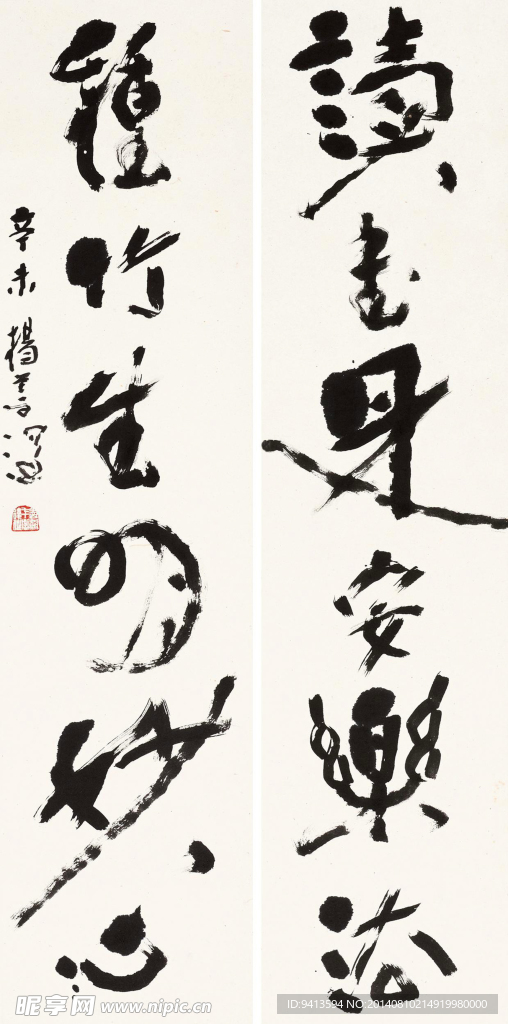 讀書是安樂法
種竹生明妙心
辛未 楊善深
昵享网 www.nipic.cn
ID:9413594 NO:20140810214919980000